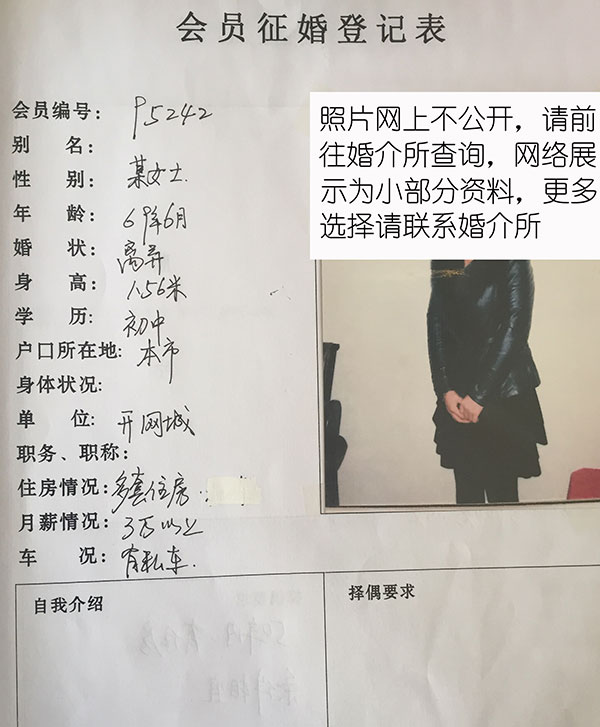 会员征婚登记表
照片网上不公开，请前
往婚介所查询，网络展
示为小部分资料，更多
选择请联系婚介所
会员编号：P5242
别 名：
性 别：某女士
年 龄：69年6月
婚 状：离异
身 高：1.56米
学 历：初中
户口所在地：本市
身体状况：
单 位：开网城
职务、职称：
住房情况：多套住房
月薪情况：3万以上
车 况：有私车
自我介绍
择偶要求